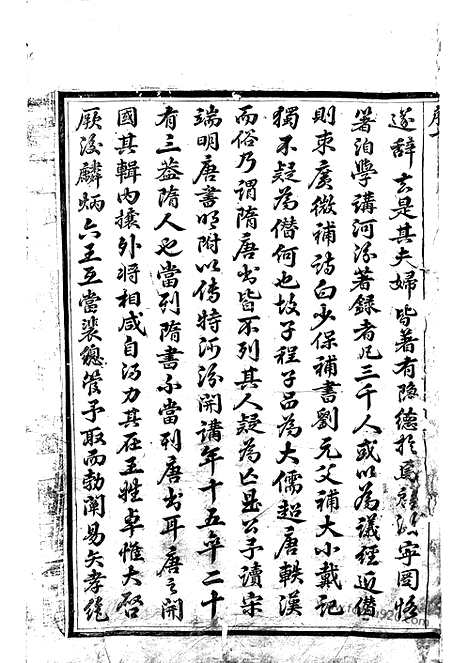 遂辞去是其夫婦皆著有隐德於烏
箸洎學講河汾著録者凡三千人或以為議經近僭
則束廣微補詩白少保補書劉元父補大小戴記
獨不疑為僭何也故子程子品為大儒超唐軼漢
而俗乃謂隋唐書皆不列其人疑為亡是公予讀宋
端明唐書明附以傳特河汾開講年十五卒二十
有三蓋隋人也當列隋書不當列唐書耳唐之開
國其輯內攘外將相咸自河力其在王牲卓惟大啓
厥後麟炳六王互當裴總管予取而勃闡易矢孝純